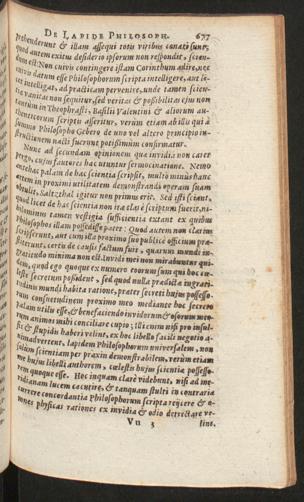 DE LAPIDE PHILOSOPH. 677
prehenderunt & illam assequi totis viribus conati sunt,
quod autem exitus desiderio ipsorum non respondit, scien-
dum est: Non cuivis contingere istam Corinthum adire, nec
cuivis datum esse Philosophorum scripta intelligere, aut li-
cet intelligat, ad practicam pervenire, unde tamen scien-
tiæ vanitas non sequitur, sed veritas & possibilitas ejus non
tantum in Theophrasti, Basilii Valentini & aliorum au-
thenticorum scriptis asseritur, verùm etiam ab illis qui à
summo Philosopho Gebero de uno vel altero principio in-
structionem nacti fuerunt potissimùm confirmatur.
Nunc ad secundam opinionem quæ invidia non caret
pergo, cujus fautores hac utuntur sermocinatione. Nemo
antehac palam de hac scientia scripsit, multò minùs hanc
artem in proximi utilitatem demonstrandi operam suam
obtulit, Saltzthal igitur non primus erit. Sed isti sciant,
quod licet de hac scientia non tractare scripti fuerit, ni-
hilominus tamen vestigia sufficientia extant ex quibus
Philosophos illam possedisse patet: Quod autem non clarius
scripserunt, aut cum illa proximo suo publicè officium præ-
stiterunt, certis de causis factum fuit, quarum mundi in-
gratitudo minima non est. Invidi mei non mirabuntur qui-
dem, quod ego quoque ex numero eorum sum qui hoc cœ-
leste secretum possident, sed quod nulla prædicta ingrati-
tudinis mundi habita ratione, præter secreti hujus possesso-
rum consuetudinem proximo meo mediante hoc secreto
palam utilis esse, & benefaciendo invidorum & osorum meo-
rum animos mihi conciliare cupio; illi enim nisi pro insul-
sis & stupidis haberi velint, ex hoc libello facilè negotio a-
nimadvertent, lapidem Philosophorum universalem, non
solùm scientiam per praxin demonstrabilem, verùm etiam
me hujus libelli authorem, cœlestis hujus scientiæ possesso-
rem quoque esse. Hoc inquam clarè videbunt, nisi ad me-
ridianam lucem cæcutire, & tanquam stulti in contraria
currere concordantia Philosophorum scripta rejicere & o-
mnes physicas rationes ex invidia & odio detrectare ve-
Vu 3 lint,